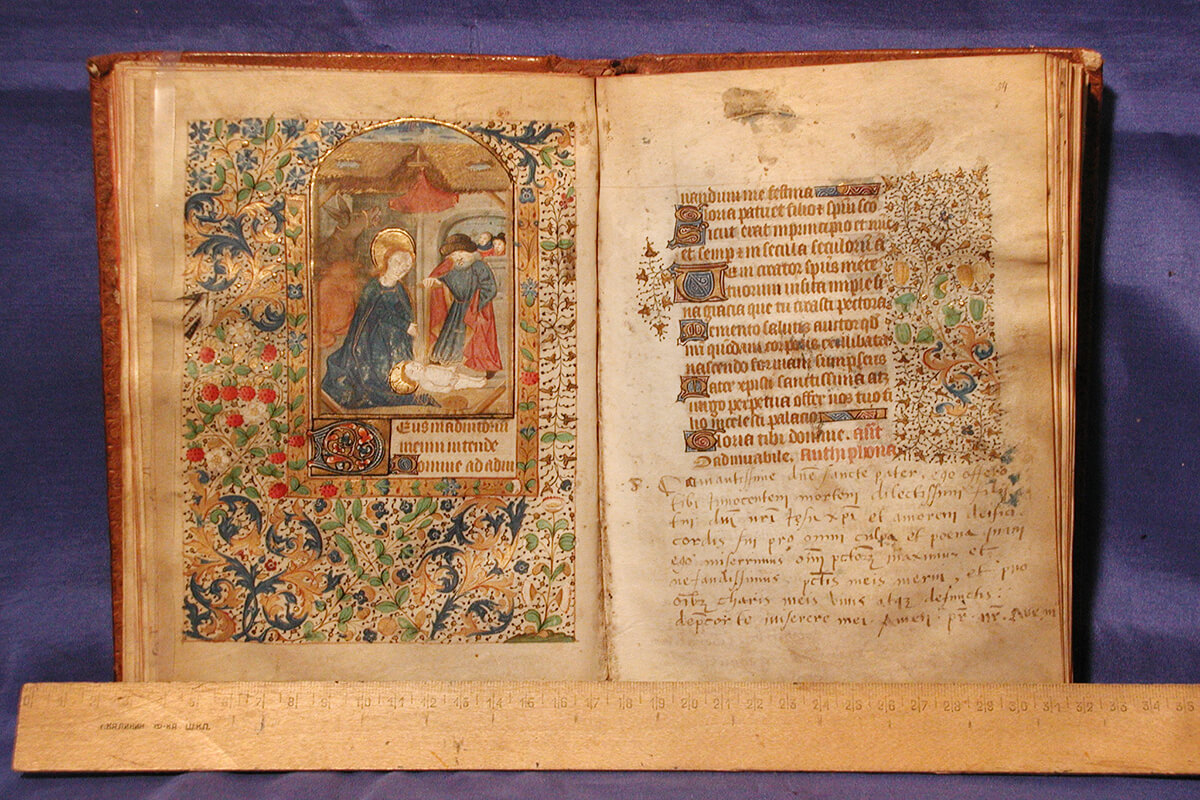 Eus in adiutoriū
meum intende
Domine ad adiu
uandum me festina
Gloria patri et filio et spiritu sco
Sicut erat in principio et nūc
et semp et in secula seculorū a
Veni creator spūs mete
tuorum visita imple su
na gracia que tu creasti pectora
Memento salutis auctor qd
nri quodam corporis ex illibata
nascendo formam sumpseris
Mater xpisti sanctissima atz
virgo perpetua offer nos tuo fi
lio in celesti palacio
Gloria tibi domine. ant̄
O admirabile. Anthiphona
amantissime dne sancte pater, ego offero
tibi Innocentem mortem dilectissimi filii
tui dnī nrī Iesu xpi et amorem deifici
cordis sui pro omni culpa et poena quam
ego miserrimus omī pctorz maximus et
nefandissimus, pctis meis merui, et pro
oībz charis meis vivis atqz defunctis:
depcor te miserere mei. Amen. pr nr. Ave m
КАЛИНИН ШКП.
0 1 2 3 4 5 6 7 8 9 10 11 12 13 14 15 16 17 18 19 20 21 22 23 24 25 26 27 28 29 30 31 32 33 34 35